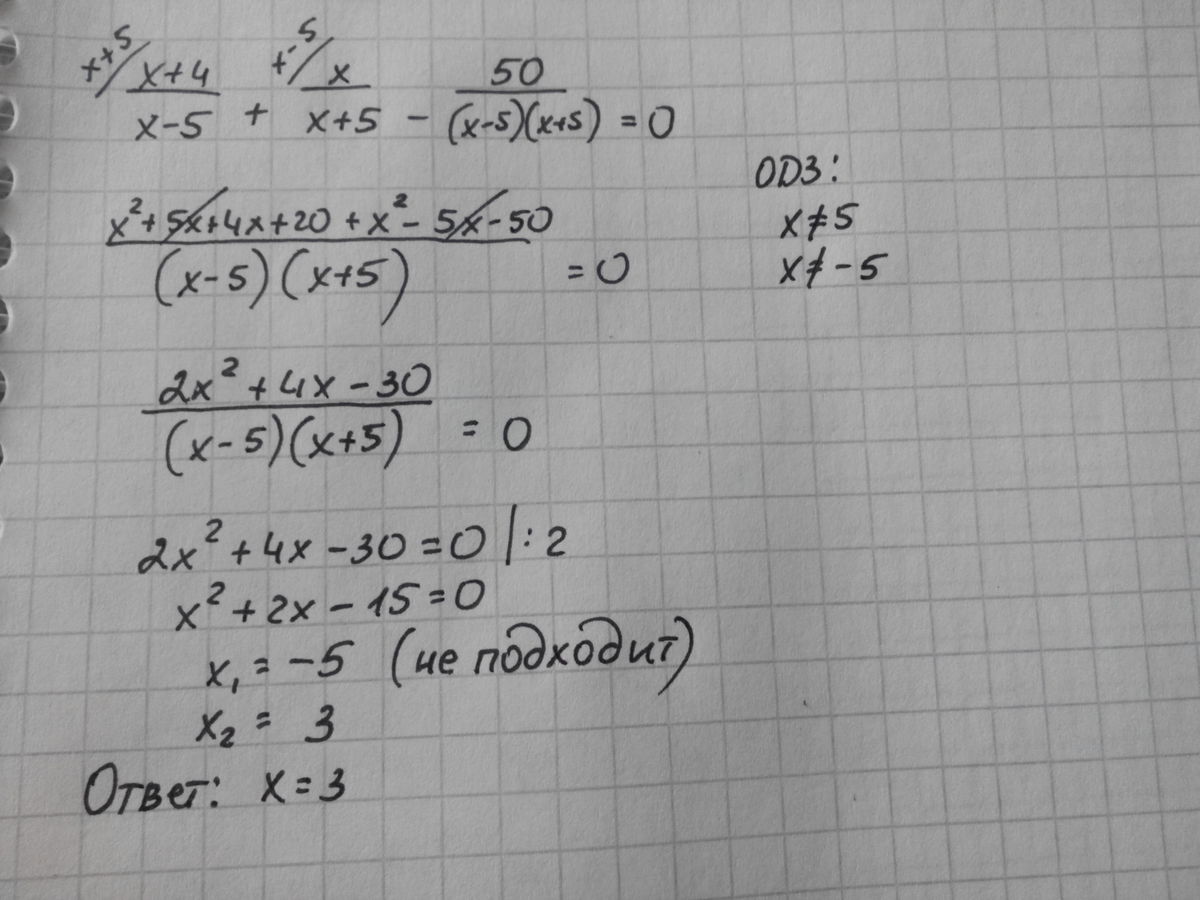 x+5/ x+4 / x-5 + x-5/ x / x+5 - 50 / (x-5)(x+5) = 0
ОДЗ:
x≠5
x≠-5
x²+5x+4x+20+x²-5x-50 / (x-5)(x+5) = 0
2x²+4x-30 / (x-5)(x+5) = 0
2x²+4x-30=0 |:2
x²+2x-15=0
x₁=-5 (не подходит)
x₂= 3
Ответ: x=3